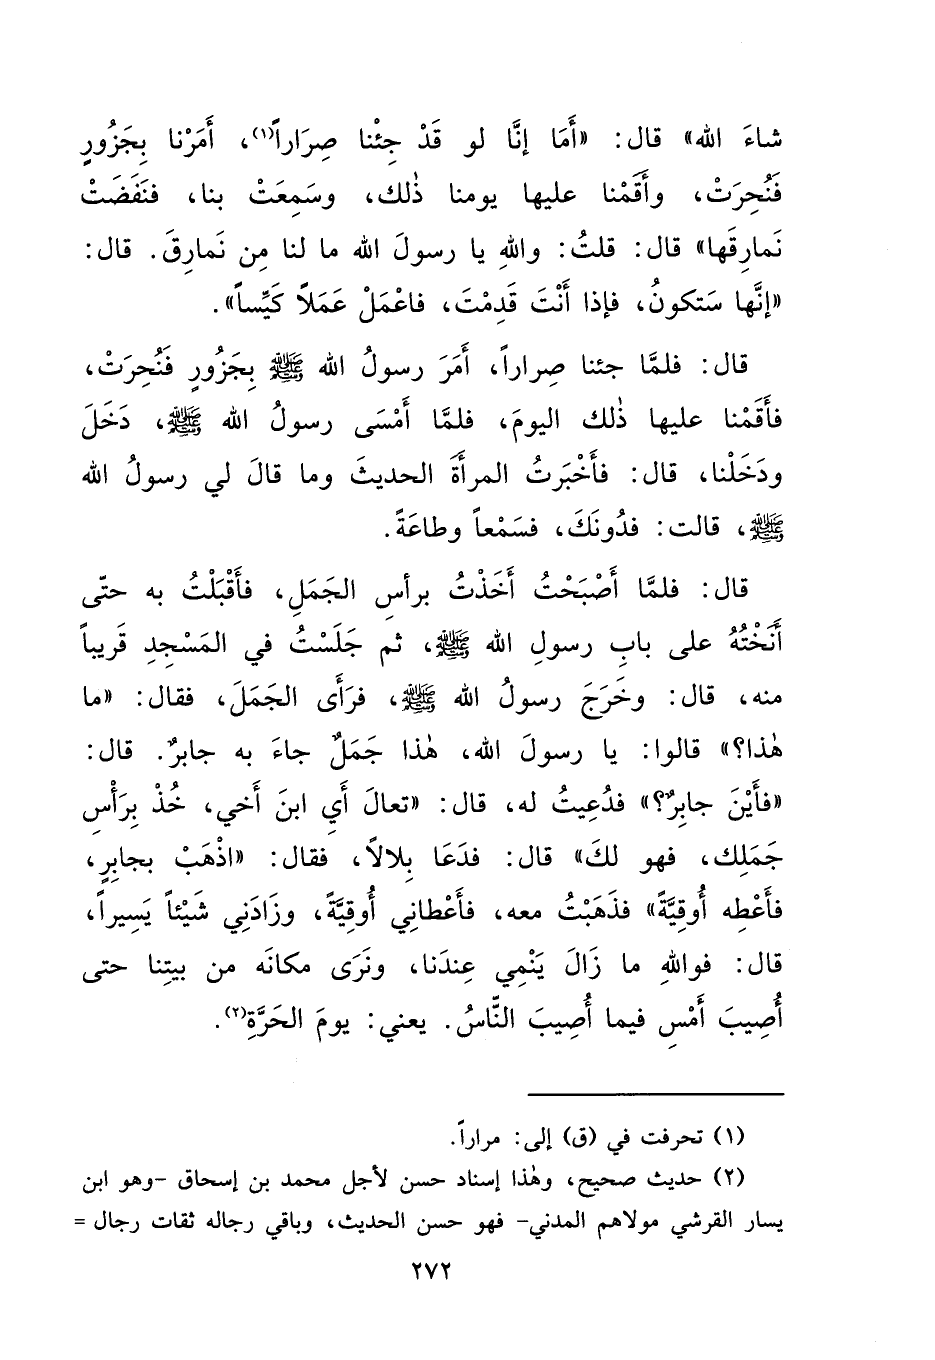 شاءَ الله» قال: «أَمَا إنَّا لو قَدْ جِئْنا صِرَاراً(١)، أَمَرْنا بِجَزُورٍ
فَنُحِرَتْ، وأَقَمْنا عليها يومنا ذٰلك، وسَمِعَتْ بنا، فنَفَضَتْ
نَمارِقَها» قال: قلتُ: واللهِ يا رسولَ الله ما لنا مِن نَمارِقَ. قال:
«إنَّها سَتكونُ، فإذا أَنْتَ قَدِمْتَ، فاعْمَلْ عَمَلاً كَيِّساً».
قال: فلمَّا جئنا صِراراً، أَمَرَ رسولُ الله ﷺ بِجَزُورٍ فَنُحِرَتْ،
فأَقَمْنا عليها ذٰلك اليومَ، فلمَّا أَمْسَى رسولُ الله ﷺ، دَخَلَ
ودَخَلْنا، قال: فأَخْبَرتُ المرأَةَ الحديثَ وما قالَ لي رسولُ الله
ﷺ، قالت: فدُونَكَ، فسَمْعاً وطاعَةً.
قال: فلمَّا أَصْبَحْتُ أَخَذْتُ برأسِ الجَمَلِ، فأَقْبَلْتُ به حتّى
أَنَخْتُهُ على بابِ رسولِ الله ﷺ، ثم جَلَسْتُ في المَسْجِدِ قَرِيباً
منه، قال: وخَرَجَ رسولُ الله ﷺ، فرَأَى الجَمَلَ، فقال: «ما
هٰذا؟» قالوا: يا رسولَ الله، هٰذا جَمَلٌ جاءَ به جابرٌ. قال:
«فأَيْنَ جابِرٌ؟» فدُعِيتُ له، قال: «تعالَ أَي ابنَ أَخي، خُذْ بِرَأْسِ
جَمَلِك، فهو لكَ» قال: فدَعَا بِلالاً، فقال: «اذْهَبْ بجابِرٍ،
فأَعْطِه أُوقِيَّةً» فذَهَبْتُ معه، فأَعْطاني أُوقِيَّةً، وزَادَنِي شَيْئاً يَسِيراً،
قال: فواللهِ ما زَالَ يَنْمِي عِندَنا، ونَرَى مكانَه من بيتِنا حتى
أُصِيبَ أَمْسِ فيما أُصِيبَ النَّاسُ. يعني: يومَ الحَرَّةِ(٢).
(١) تحرفت في (ق) إلى: مراراً.
(٢) حديث صحيح، وهٰذا إسناد حسن لأجل محمد بن إسحاق -وهو ابن
يسار القرشي مولاهم المدني- فهو حسن الحديث، وباقي رجاله ثقات رجال =
٢٧٢